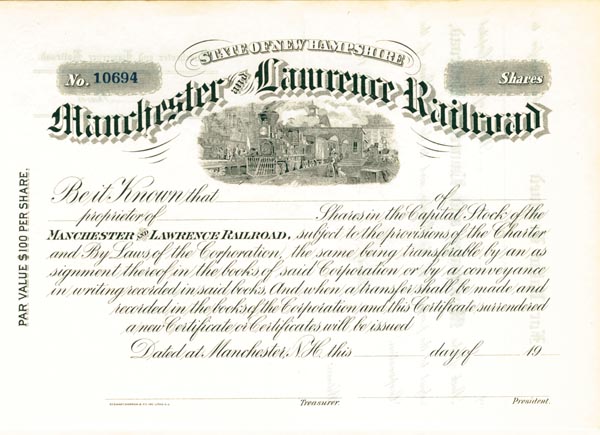 STATE OF NEW HAMPSHIRE
No. 10694
Shares
Manchester and Lawrence Railroad
PAR VALUE $100 PER SHARE,
Be it Known that of
proprietor of Shares in the Capital Stock of the
MANCHESTER AND LAWRENCE RAILROAD, subject to the provisions of the Charter
and By Laws of the Corporation, the same being transferable by an as
signment thereof in the books of said Corporation or by a conveyance
in writing recorded in said books. And when a transfer shall be made and
recorded in the books of the Corporation and this Certificate surrendered
a new Certificate or Certificates will be issued
Dated at Manchester, N.H. this day of 19
Treasurer. President.